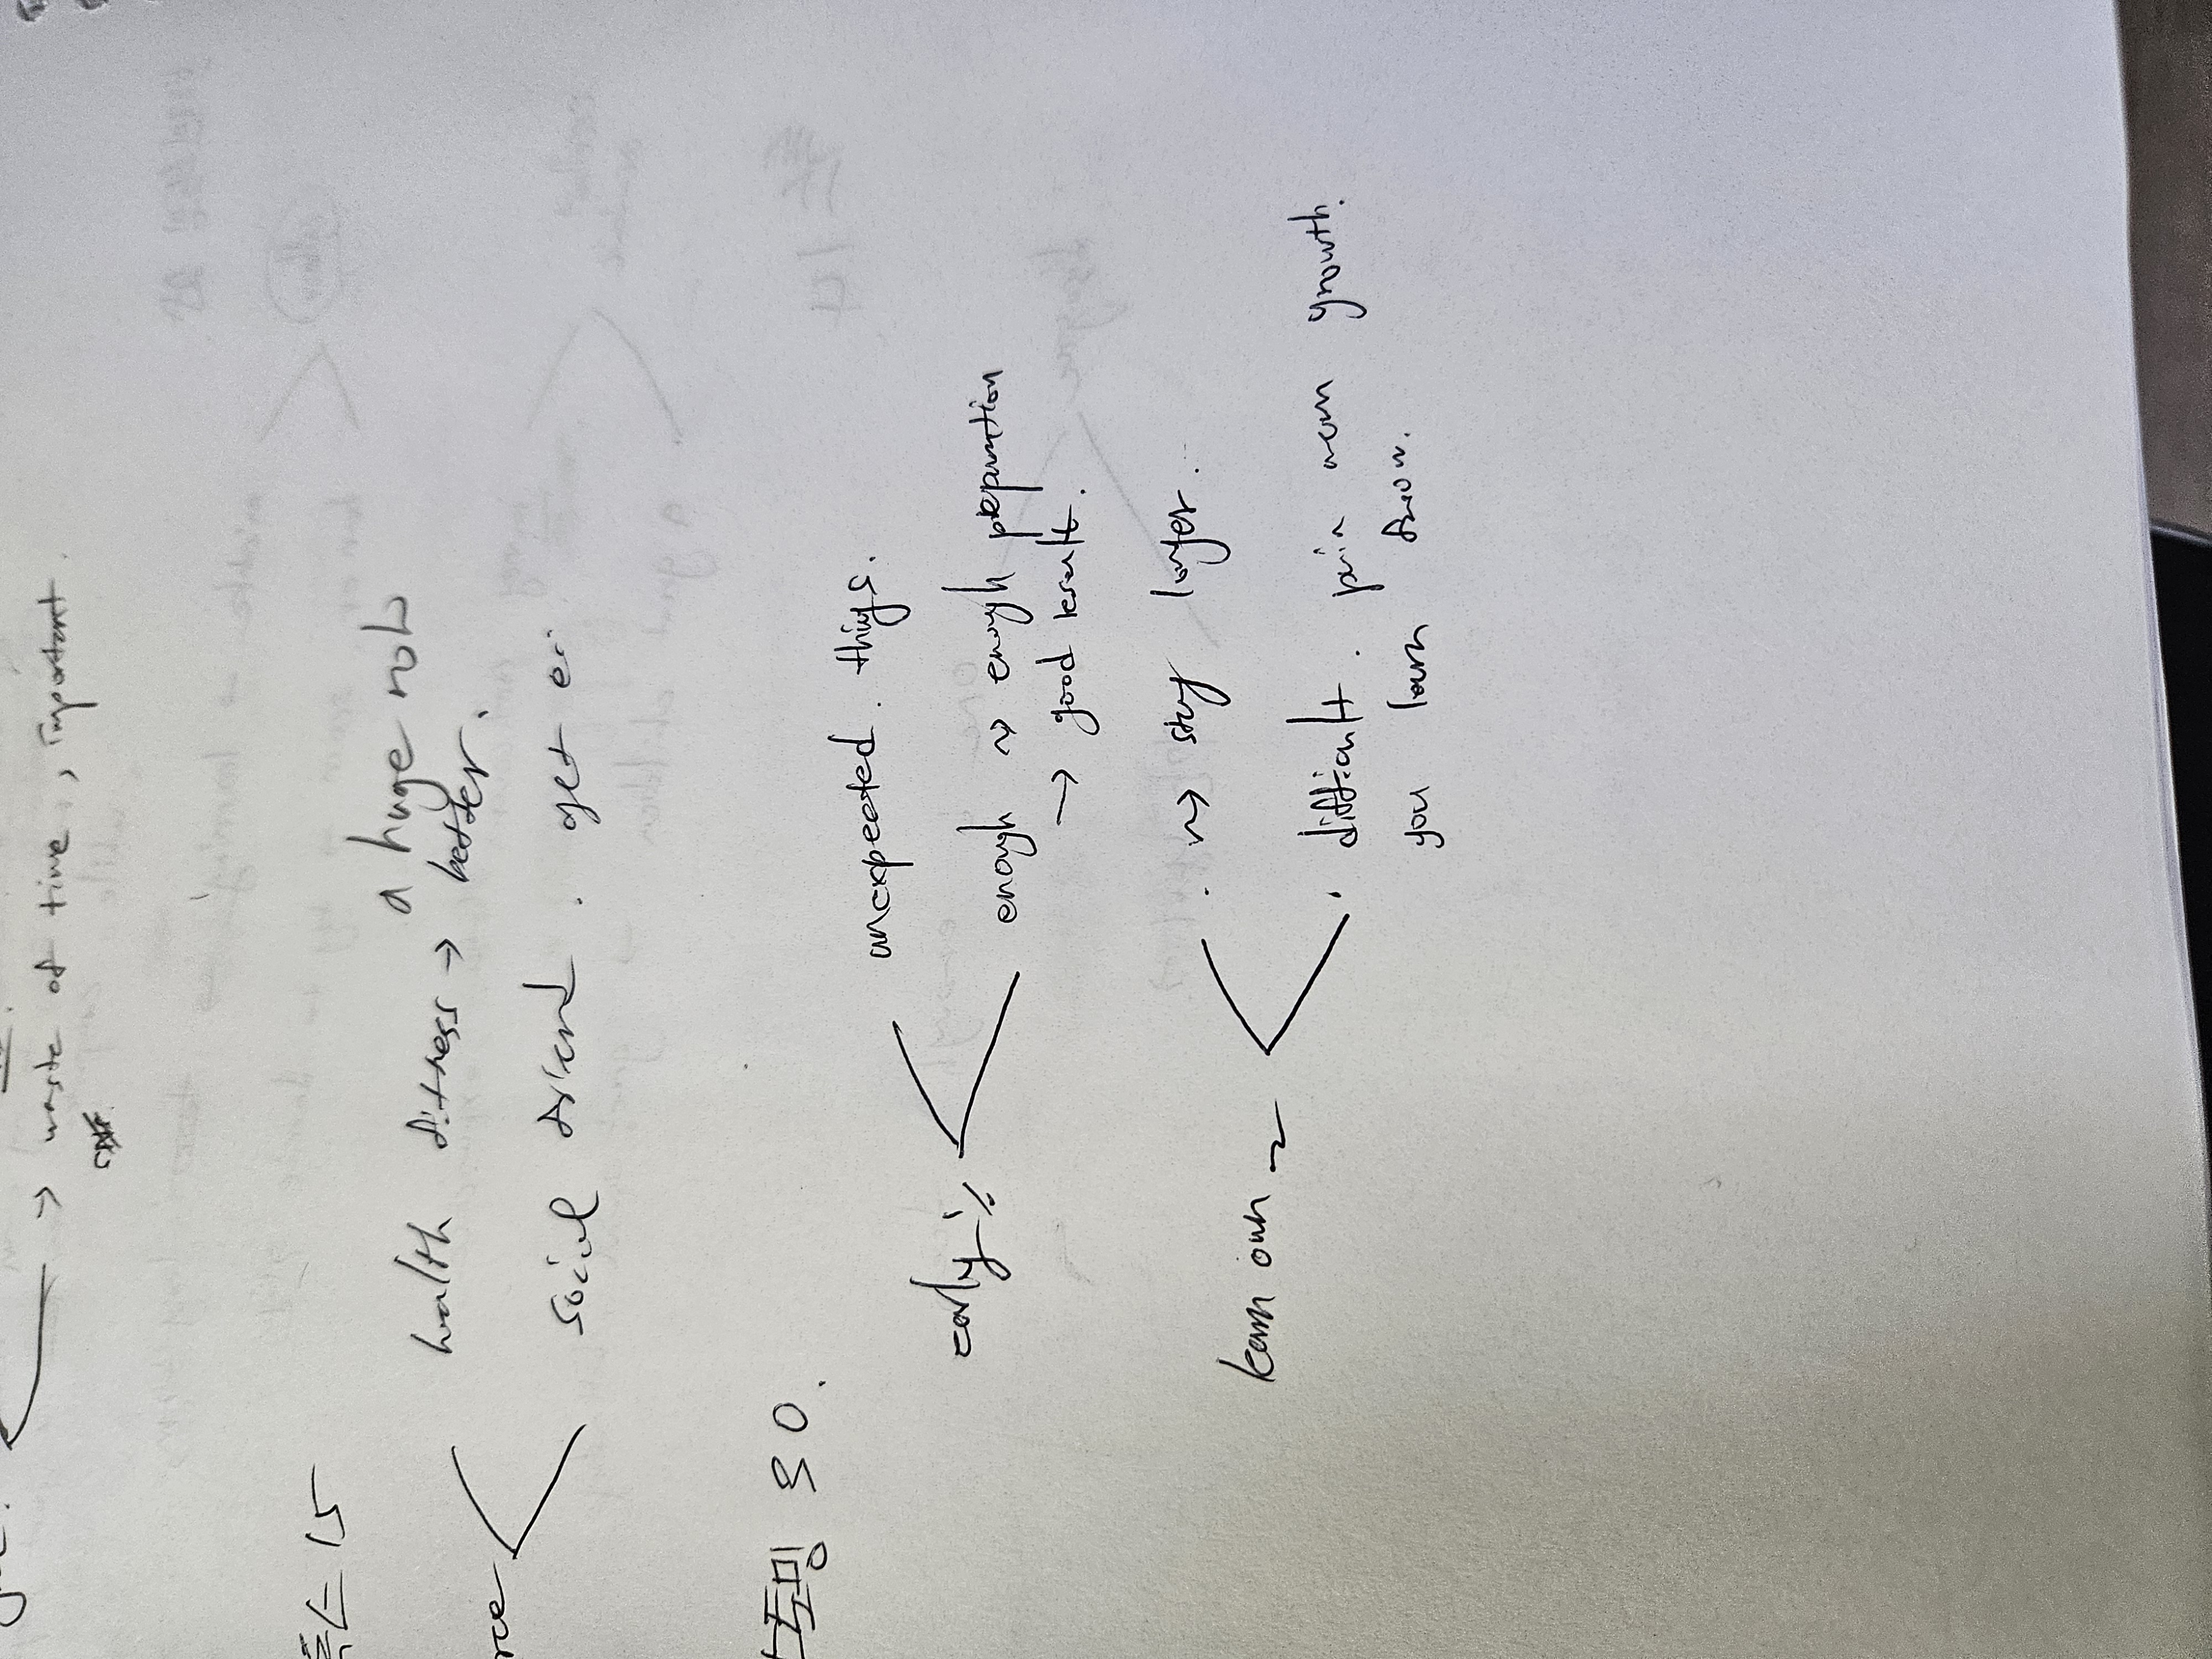 → waste of time, important.
15
a huge role
health fitness → better.
social friend. get
30.
unexpected things.
early
enough ~> enough preparation
→ good result.
~> stay longer.
learn own ~
difficult. pain own growth.
you learn from.